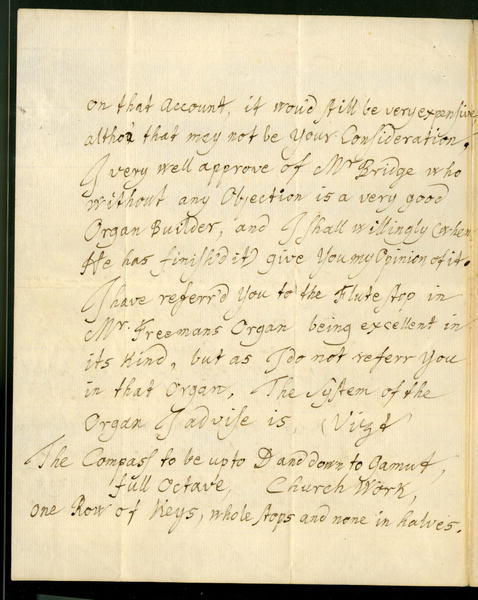 on that Account, it wou'd still be very expensive
altho' that may not be Your Consideration.
I very well approve of Mr Bridge who
without any Objection is a very good
Organ Builder, and I shall willingly (when
He has finish'd it) give You my Opinion of it.
I have referr'd You to the Flute stop in
Mr. Freemans Organ being excellent in
its kind, but as I do not referr You
in that Organ, The System of the
Organ I advise is, (Vizt
The Compass to be up to D and down to Gamut,
full Octave, Church Work,
one Row of Keys, whole stops and none in halves.